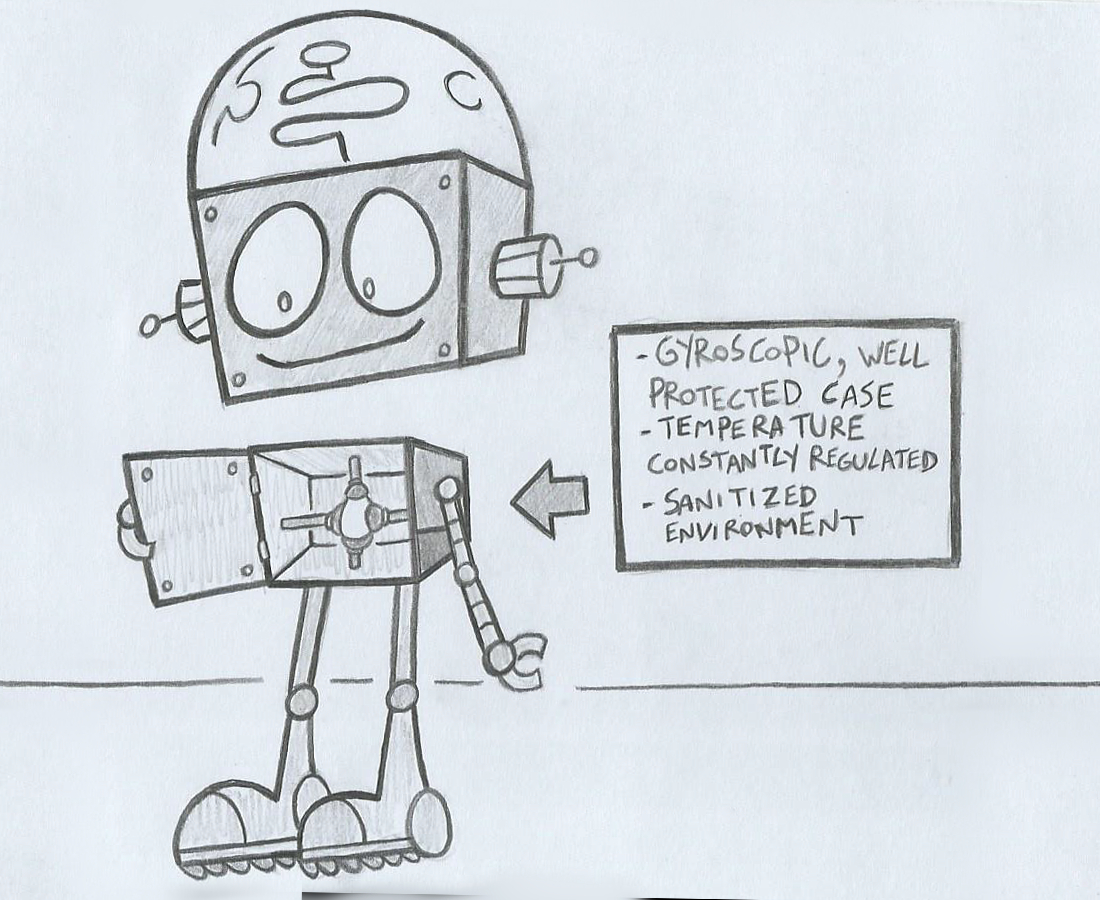 - GYROSCOPIC, WELL
PROTECTED CASE
- TEMPERATURE
CONSTANTLY REGULATED
- SANITIZED
ENVIRONMENT